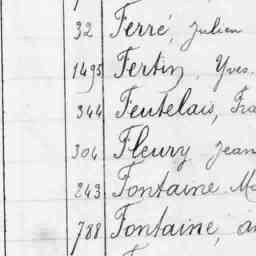 32 Ferré, Julien
1495 Fertin, Yves.
344 Feutelais, Fra
304 Fleury Jean
243 Fontaine Ma
788 Fontaine, a